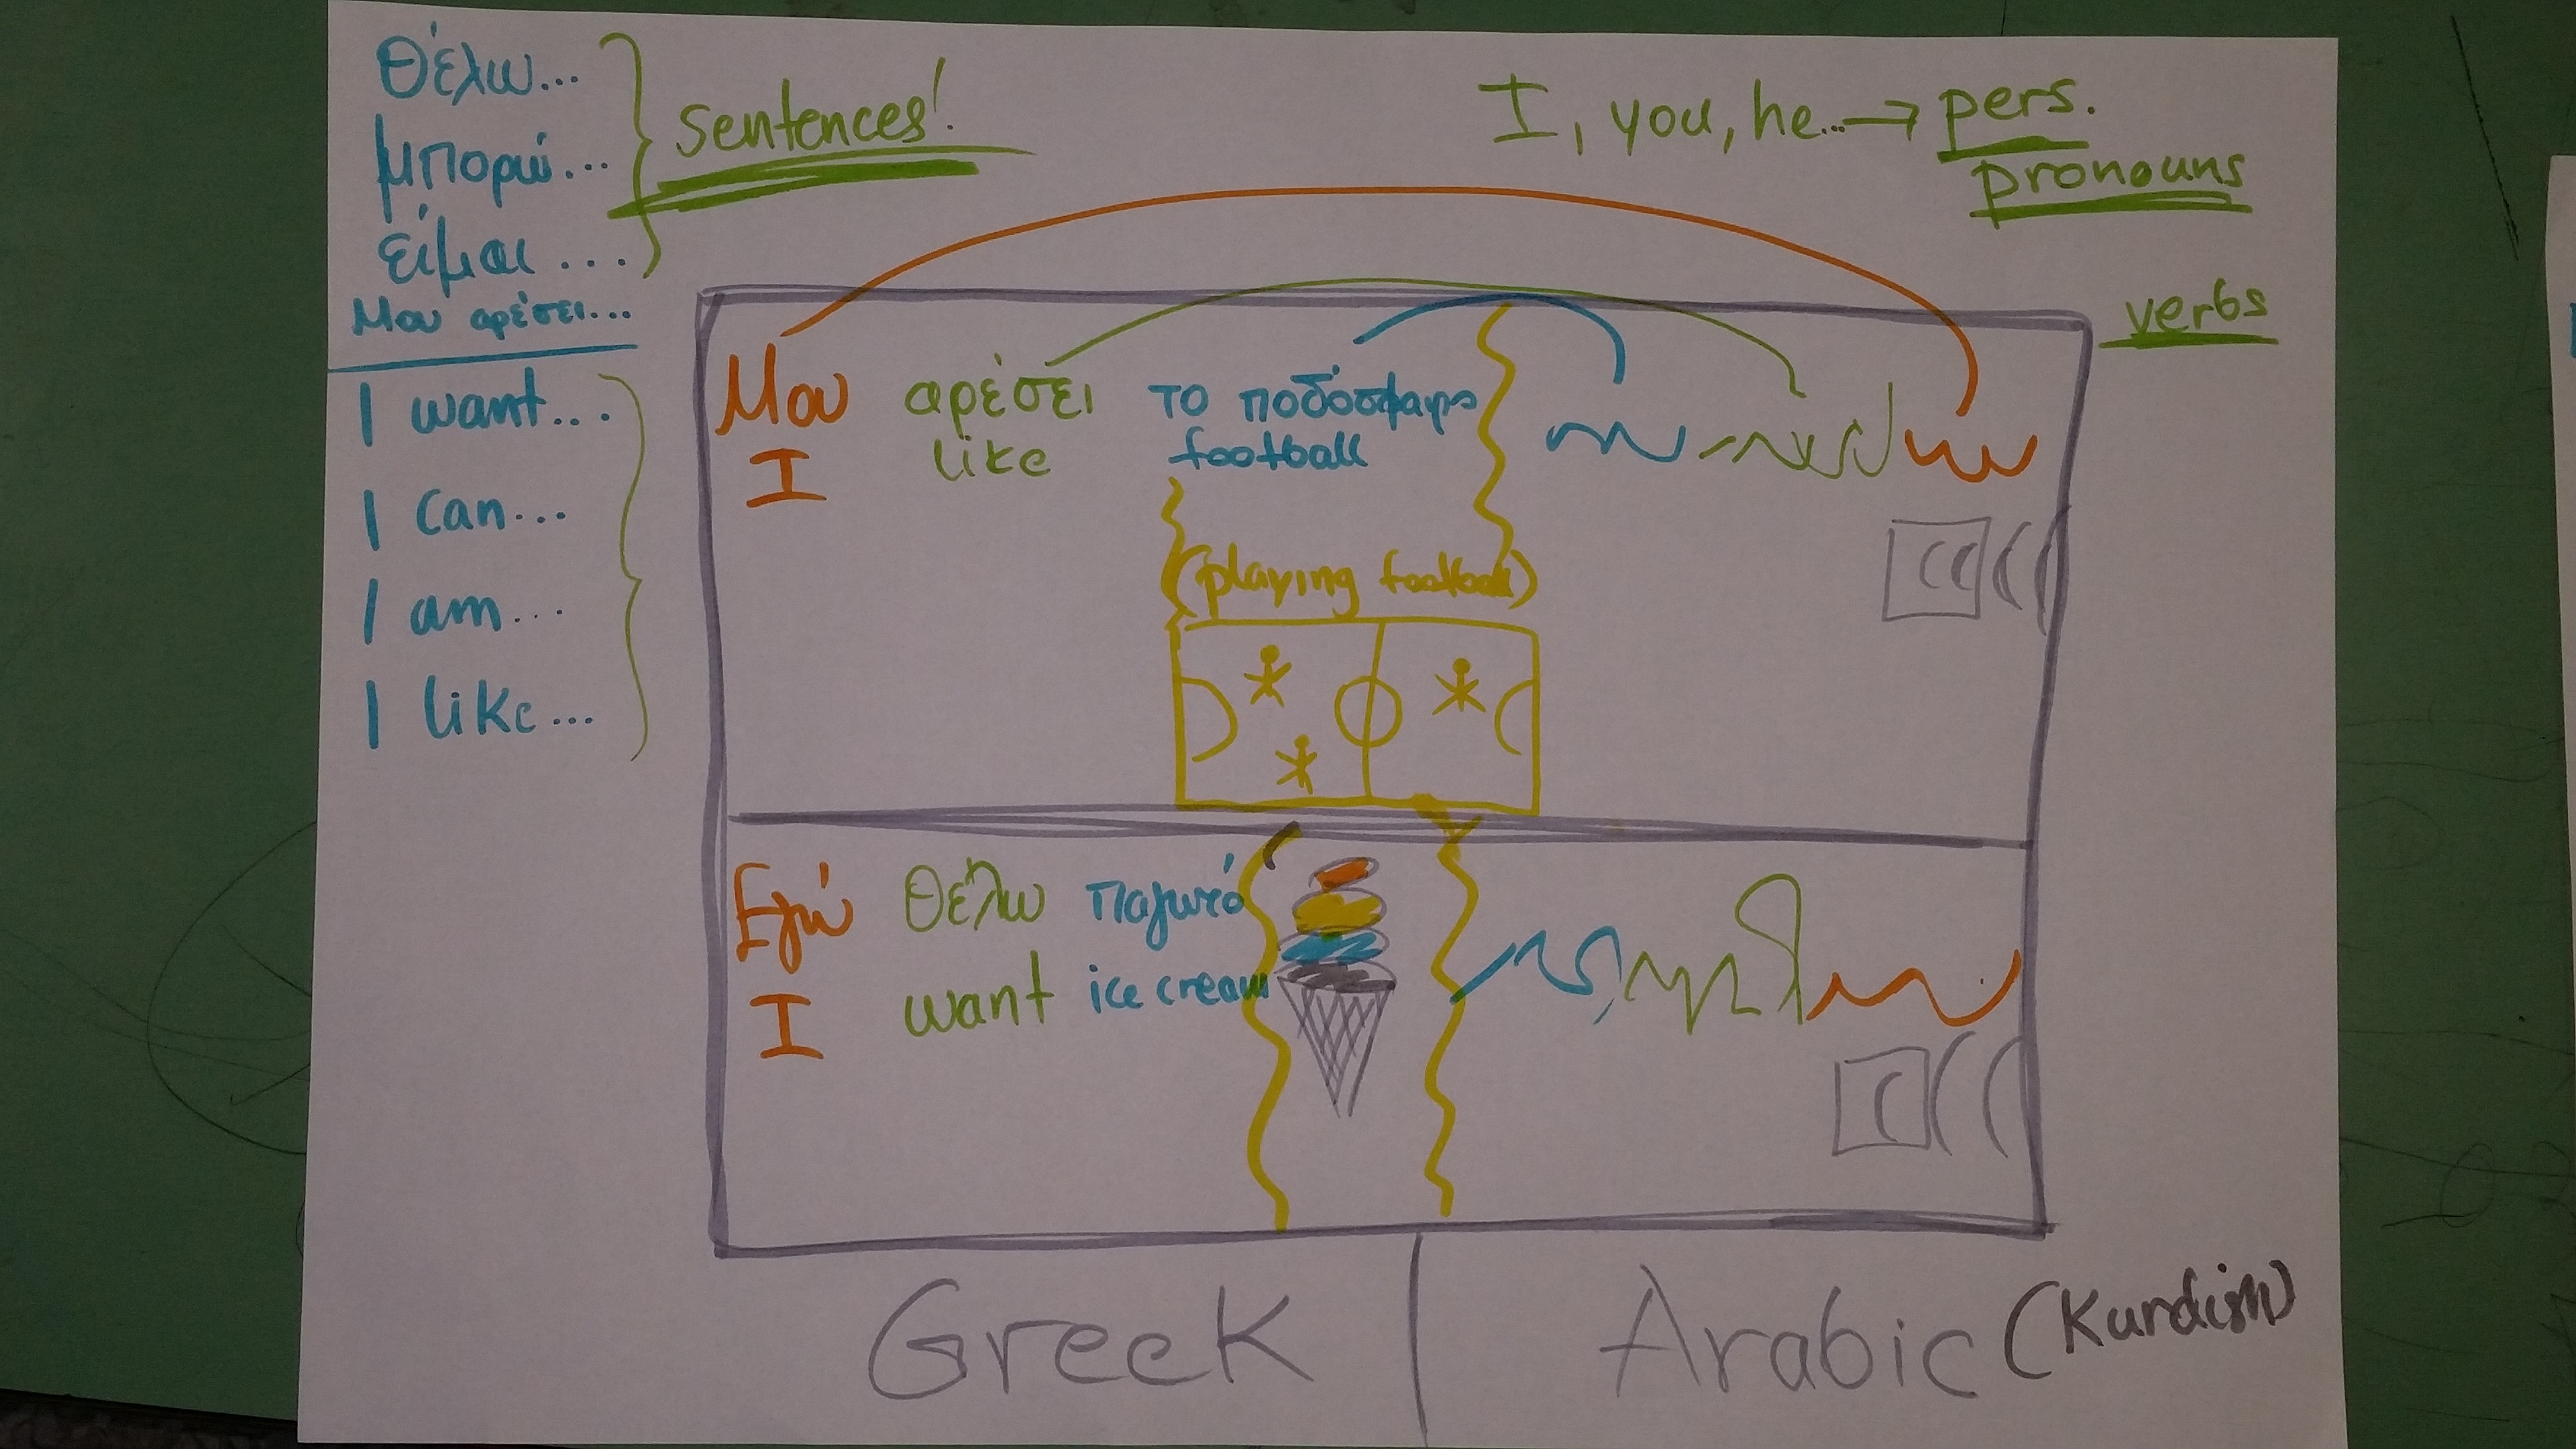 Θέλω...
μπορώ...
είμαι ...
Μου αρέσει...
sentences!
I want...
I can...
I am...
I like...
I, you, he...→ pers.
pronouns
verbs
Μου αρέσει το ποδόσφαιρο
I like football
(playing football)
Εγώ Θέλω παγωτό
I want ice cream
Greek | Arabic (Kurdish)